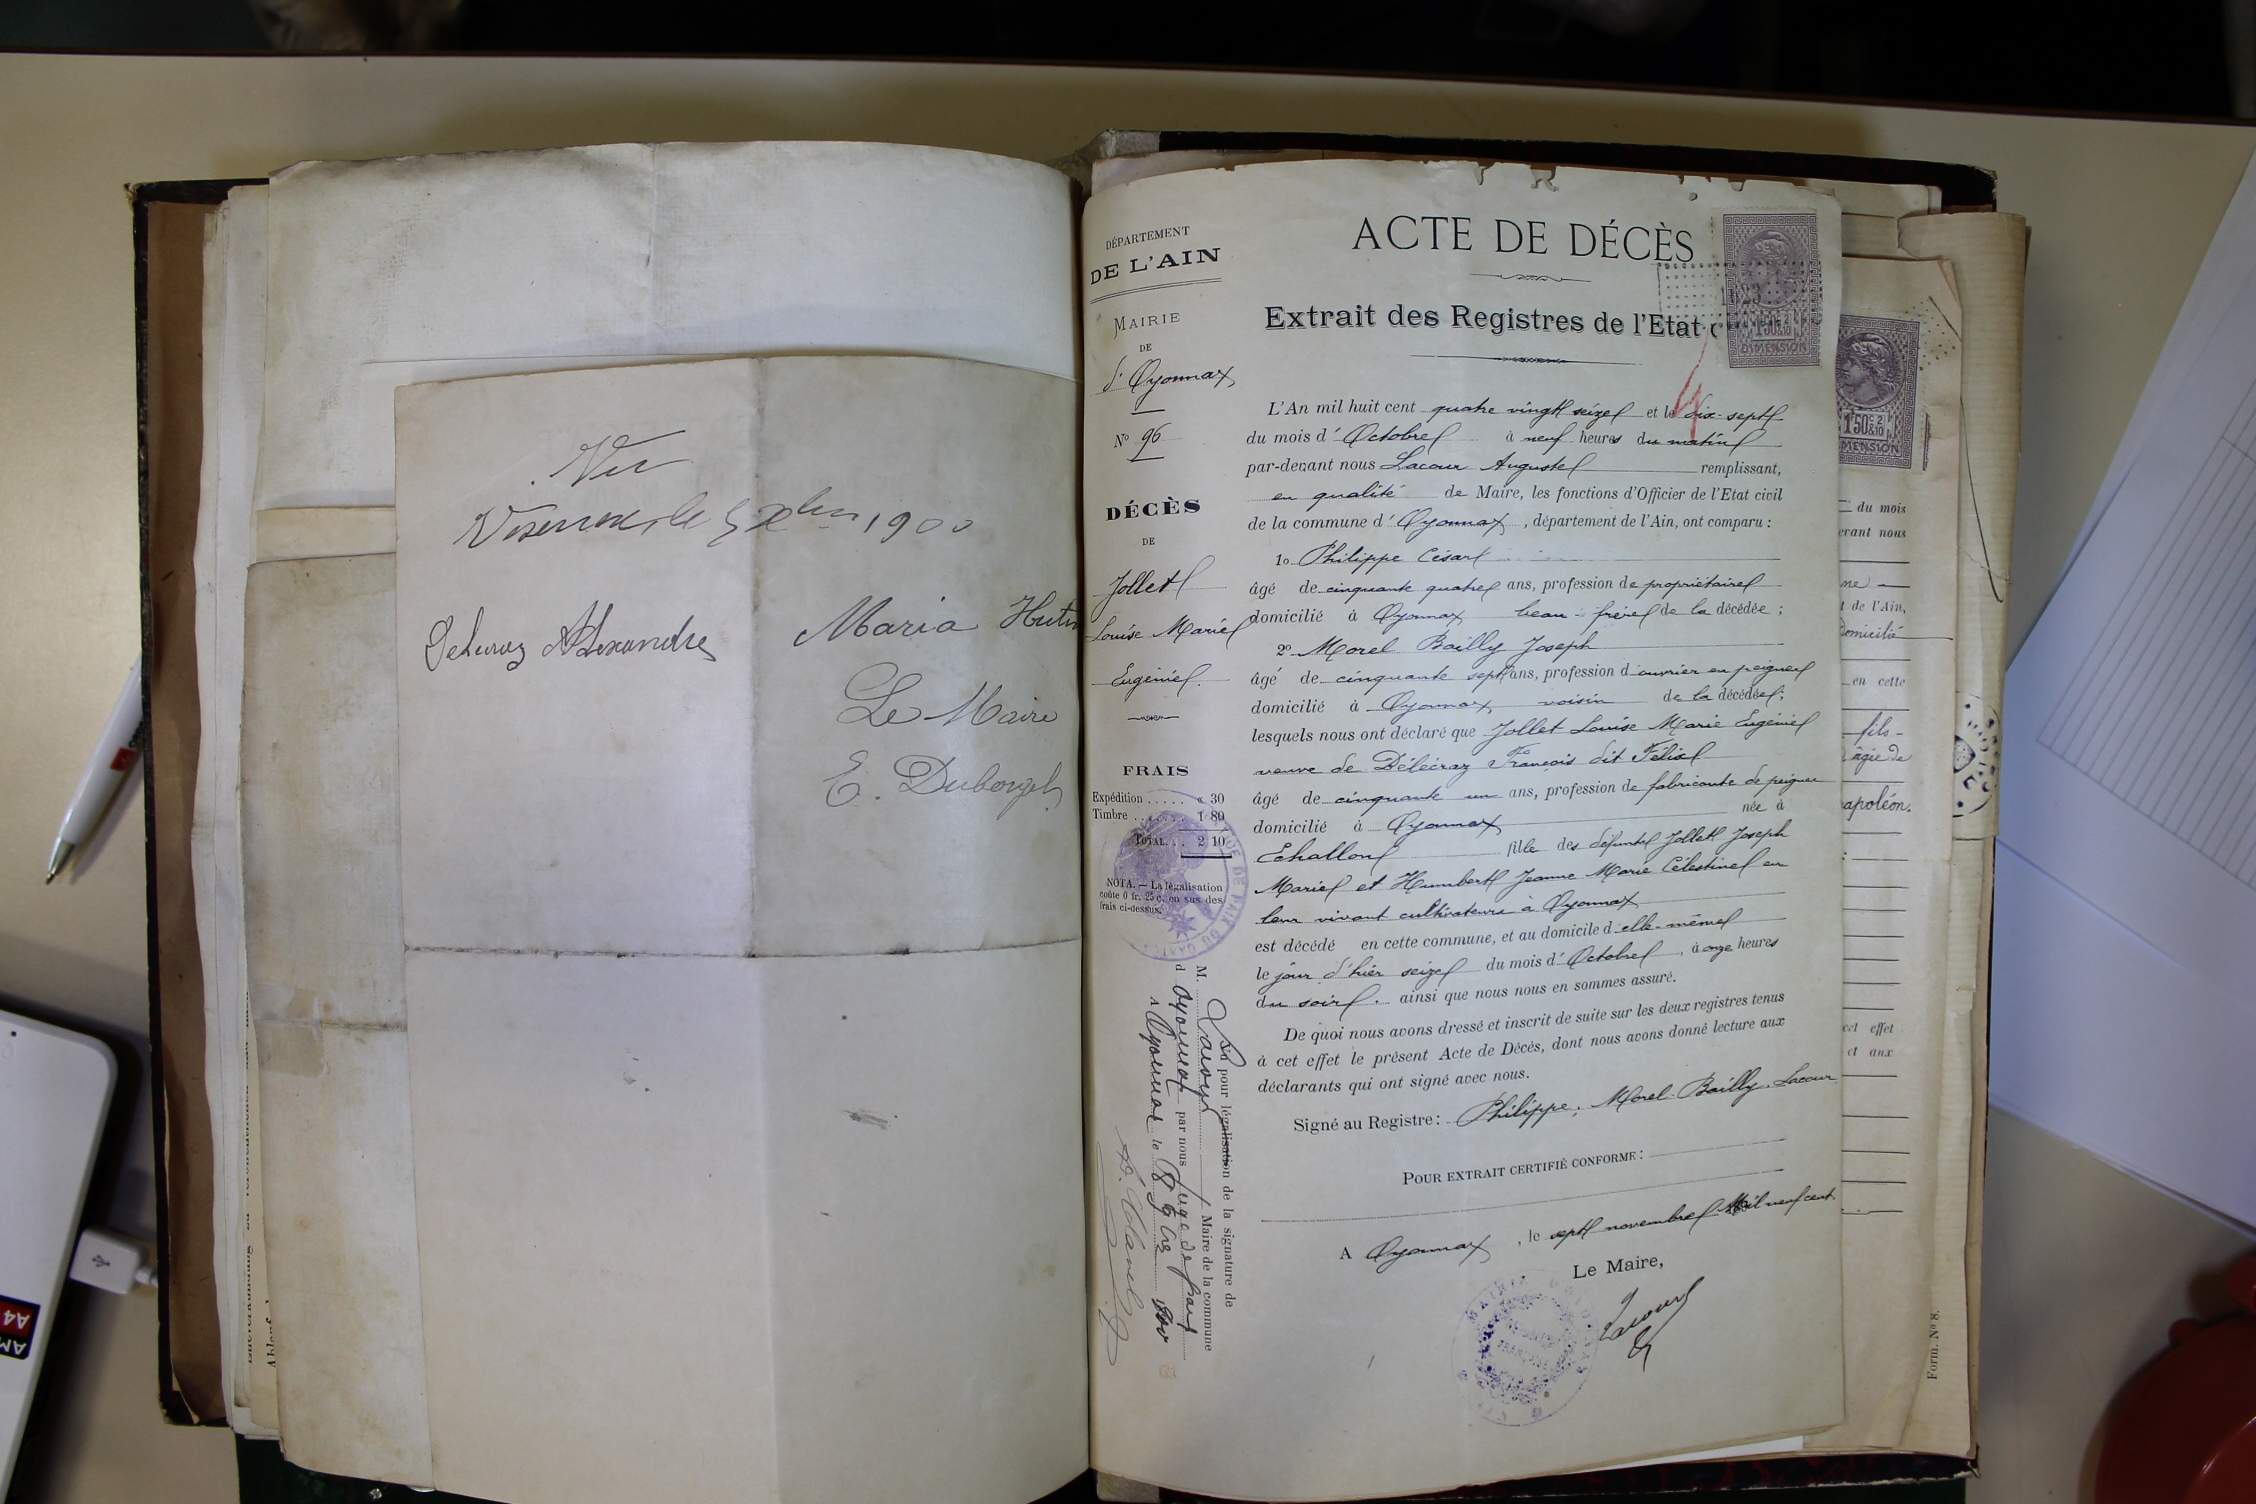 Vu
le 5 Xbre 1900
Delucraz Alexandre
Maria Hutin
Le Maire
E. Duborget
DÉPARTEMENT
DE L'AIN
MAIRIE
DE
d' Oyonnax
No 96
DÉCÈS
DE
Jollet
Louise Marie
Eugénie
FRAIS
Expédition ..... « 30
Timbre ..... 1 80
TOTAL... 2 10
NOTA. — La légalisation
coûte 0 fr. 25 c. en sus des
frais ci-dessus.
Vu pour légalisation de la signature de
M. Lacour Maire de la commune
d'Oyonnax par nous Juge de paix
A Oyonnax le 8 9bre 1900
ACTE DE DÉCÈS
Extrait des Registres de l'Etat c
L'An mil huit cent quatre vingt seize et le dix-sept
du mois d' Octobre à neuf heures du matin
par-devant nous Lacour Auguste remplissant,
en qualité de Maire, les fonctions d'Officier de l'Etat civil
de la commune d' Oyonnax, département de l'Ain, ont comparu :
1o Philippe César
âgé de cinquante quatre ans, profession de propriétaire
domicilié à Oyonnax beau-frère de la décédée ;
2o Morel Bailly Joseph
âgé de cinquante sept ans, profession d'ouvrier en peignes
domicilié à Oyonnax voisin de la décédée ;
lesquels nous ont déclaré que Jollet Louise Marie Eugénie
veuve de Délécraz François dit Félix
âgé de cinquante un ans, profession de fabricante de peignes
domicilié à Oyonnax née à
Echallon fille des défunts Jollet Joseph
Marie et Humbert Jeanne Marie Célestine en
leur vivant cultivateurs à Oyonnax
est décédé en cette commune, et au domicile d'elle-même
le jour d'hier seize du mois d' Octobre, à onze heures
du soir. ainsi que nous nous en sommes assuré.
De quoi nous avons dressé et inscrit de suite sur les deux registres tenus
à cet effet le présent Acte de Décès, dont nous avons donné lecture aux
déclarants qui ont signé avec nous.
Signé au Registre : Philippe ; Morel-Bailly. Lacour
POUR EXTRAIT CERTIFIÉ CONFORME :
A Oyonnax, le sept novembre Mil neuf cent
Le Maire,
Lacour
1F50c 2/10
DIMENSION
1F50c 2/10
DIMENSION
du mois
evant nous
ne
t de l'Ain,
Domicilié
en cette
fils
âgée de
apoléon.
cet effet
et aux
Form. No 8.
A4